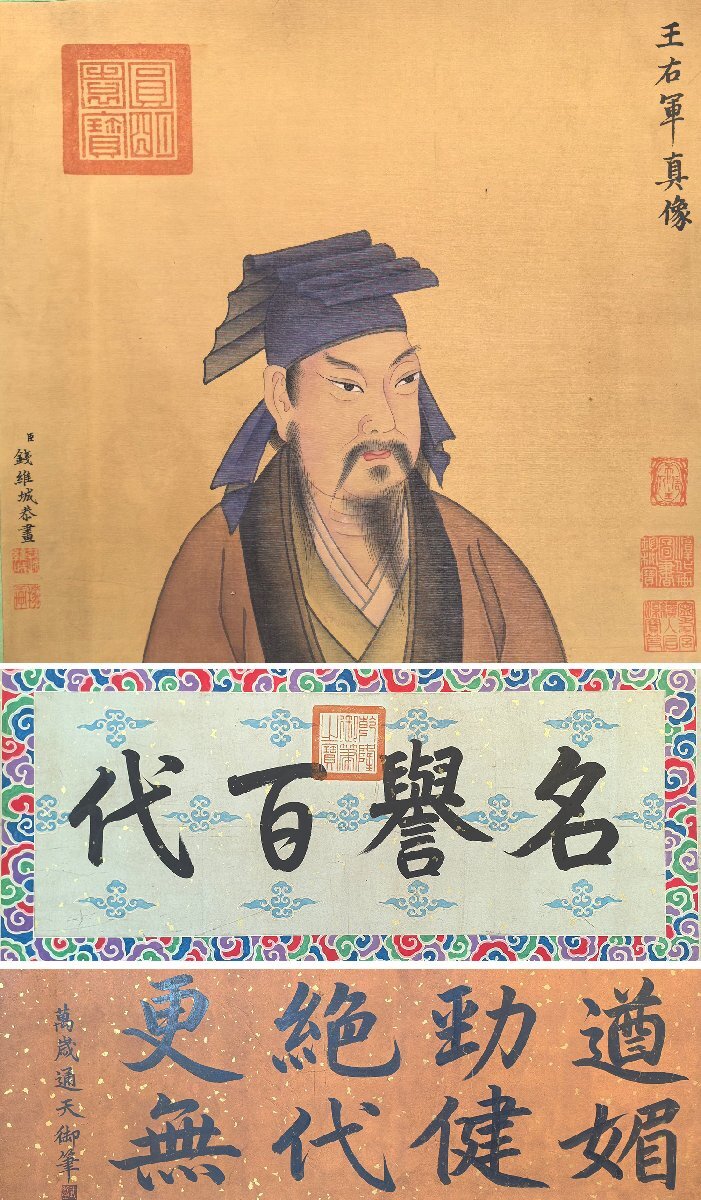 王右軍真像
臣錢維城恭畫
乾隆御筆之寶
名譽百代
遒媚
勁健
絕代
更無
萬歲通天御筆